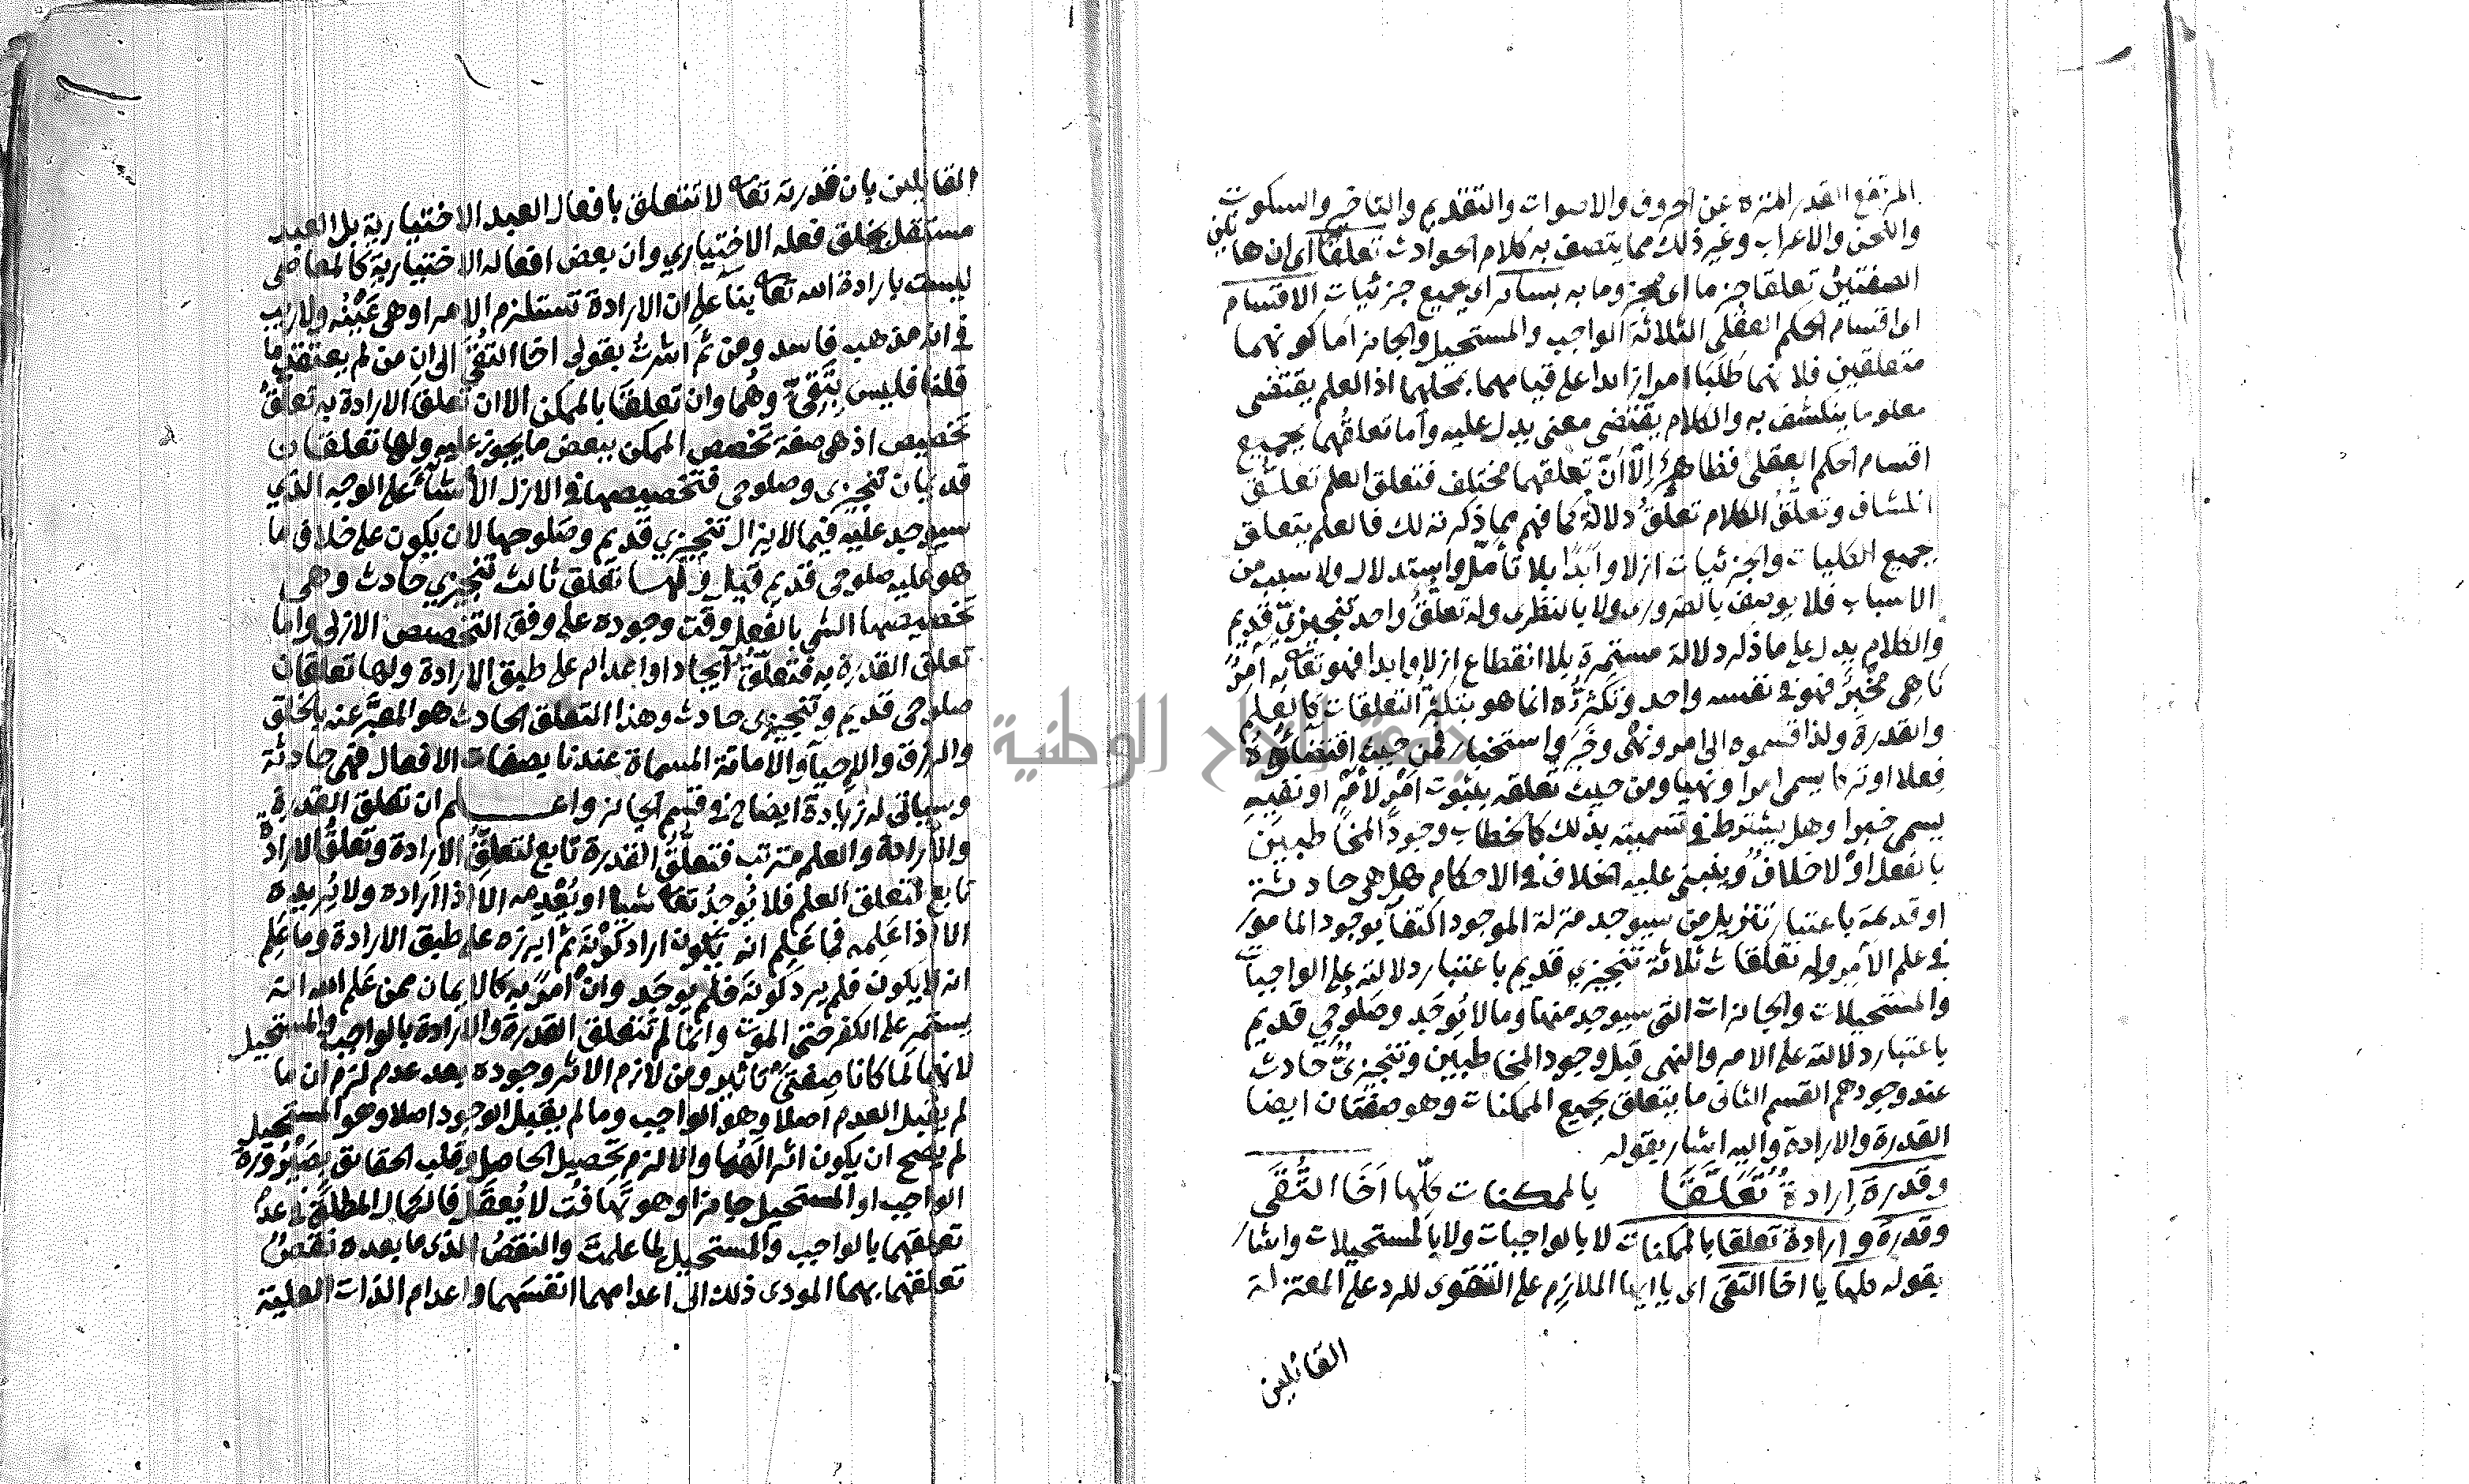 المرتفع القدر المنزه عن الحروف والاصوات والتقديم والتاخير والسكوت
واللحن والاعراب وغير ذلك مما يتصف به كلام الحوادث تعلقا اي ان هاتين
الصفتين تعلقا جزما اي مجزوما به بسائر اي جميع جزئيات الاقسام
اى اقسام الحكم العقلى الثلاثة الواجب والمستحيل والجائز اما كونهما
متعلقين فلانهما طلبا امرا زايدا على قيامهما بمحلهما اذ العلم يقتضى
معلوما ينكشف به والكلام يقتضى معنى يدل عليه وأما تعلقهما بجميع
اقسام الحكم العقلى فظاهر إلّا أنّ تعلقهما مختلف فتعلق العلم تعلق
انكشاف وتعلّقُ الكلام تعلّقُ دلالة كما فهم مما ذكرته لك فالعلم يتعلق
بجميع الكليات والجزئيات ازلا وأبدًا بلا تأمّل واستدلال ولا سبب من
الاسباب فلا يوصف بالضرورى ولا بالنظرى وله تعلّقُ واحد تنجيزيّ قديم
والكلام يدل على ما ذكر دلالة مستمرة بلا انقطاع ازلا وابدا فهو تعالى به امرٌ
ناهى مخبرٌ فهو في نفسه واحد وتكثرُّه انما هو بتكثر التعلقات كالعلم
والقدرة ولذا قسموه الى امر ونهْى وخبَر واستخبار فمن حيث اقتضاؤه
فعلا او تركا يسمى امرا ونهيا ومن حيث تعلقه بثبوت امْر لأمْرٍ او نفيِه
يسمى خبرا وهل يشترط فى تسميته بذلك كالخطاب وجودُ المخاطبين
بالفعل اوْ لا خلافٌ وينبنى عليه الخلاف فى الاحكام هل هى حادثة
او قديمة باعتبار تنزيل من سيوجد منزلة الموجود اكتفآ بوجود المامور
فى علم الآمر وله تعلقات ثلاثة تنجيزي قديم باعتبار دلالته على الواجبات
والمستحيلات والجائزات التى سيوجد منها وما لا يُوجَد وصَلُوحي قديم
باعتبار دلالته على الامر والنهى قبل وجود المخاطبين وتنجيزىٌّ حادث
عند وجودهم القسم الثانى ما يتعلق بجميع الممكنات وهو صفتان ايضا
القدرة والارادة واليه اشار بقوله
وقدرة إرادةٌ تَعَلَّقَا بالممكنات كلّها أَخَا التُّقَى
وقدرةٌ و إرادة تعلقا بالممكنات لا بالواجبات ولا بالمستحيلات واشار
بقوله كلها يا اخا التقى اى يا ايها الملازم على التقوى للرد على المعتزلة
القائلين
القايلين بان قدرته تعالى لا تتعلق بافعال العبد الاختيارية بل العبد
مستقل بخلق فعله الاختياري وان بعض افعاله الاختيارية كالمعاصى
ليست بارادة الله تعالى بنآ على ان الارادة تستلزم الامر او هى عَيْنُه ولا ريب
فى انه مذهب فاسد ومن ثَمَّ اشرتُ بقولى اخا التُقَى الى ان من لم يعتقد ما
قلنا فليس بِتَقِىٍّ وهُما وان تعلقَا بالممكن الا ان تعلُّقَ الارادة به تعلّقُ
تخصيص اذ هى صفة تخصص الممكن ببعض ما يجوز عليه ولها تعلقان
قديمان تنجيزى وصلوحى فتخصيصها فى الازل الأشيآءَ على الوجه الذي
سيوجد عليه فيما لا يزال تنجيزي قديم وصَلوحها لان يكون على خلاف ما
هو عليه صلوحى قديم قيل ولها تعلق ثالث تنجيزي حادث وهى
تخصيصها الشى بالفعل وقت وجوده على وفق التخصيص الازلى واما
تعلق القدرة به فتعلّقُ ايجاد او اعدام على طبق الارادة ولها تعلقان
صلوحى قديم وتنجيزى حادث وهذا التعلق الحادث هو المعبَّر عنه بالخلق
والرزق والإحيآ والاماتة المسماة عندنا بصفات الافعال فهى حادثة
وسياتى له زيادة ايضاح فى قسم الجائز واعلم ان تعلق القدرة
والارادة والعلم مترتب فتعلُّقُ القدرة تابع لتعلُّقِ الارادة وتعلُّقُ الارادة
تابع لتعلق العلم فلا يُوجِدُ تعالى شيا او يُعْدِمه الا اذا اراده ولا يُريده
الا اذا عَلِمه فما عَلِم انه يَكون اراد كَوْنَه ثم ابرزه على طبق الارادة وما عَلِم
انه لا يَكون فلم يرد كَونَه فلم يوجَد وانْ أمَرَ به كالايمان ممن عَلم الله انه
يستمر على الكفر حتى الموت وانما لم تتعلق القدرة والارادة بالواجب والمستحيل
لانهما لَما كانا صِفتَىْ تاثير ومن لازم الاثر وجوده بعد عدم لزم ان ما
لم يقبل العدم اصلا وهو الواجب وما لم يقبل الوجود اصلا وهو المستحيل
لم يصح ان يكون اثرا لهُما والا لزم تحصيل الحاصل وقلب الحقائق بصَيْرُورة
الواجب او المستحيل جايزا وهو تَهافُت لا يُعقَل فالكمال المطلق فى عدم
تعلقهما بالواجب والمستحيل لما علمت والنقصُ الذى ما بعده نقصٌ
تعلقهما بهما المودى ذلك الى اعدامهما انفسَهما واعدام الذات العلية
جامعة النجاح الوطنية